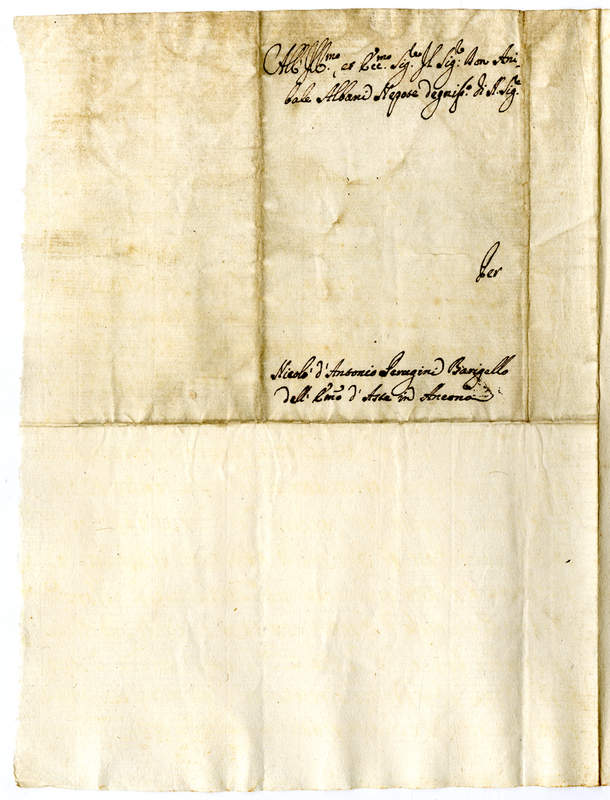 All' Ill.mo et Ecc.mo Sig.re Il Sig.r Don Ani-
bale Albani Nepote degniss.o di N. Sig.re
Per
Nicolò d'Antonio Perugini Barigello
dell' E.mo d'Aste in Ancona